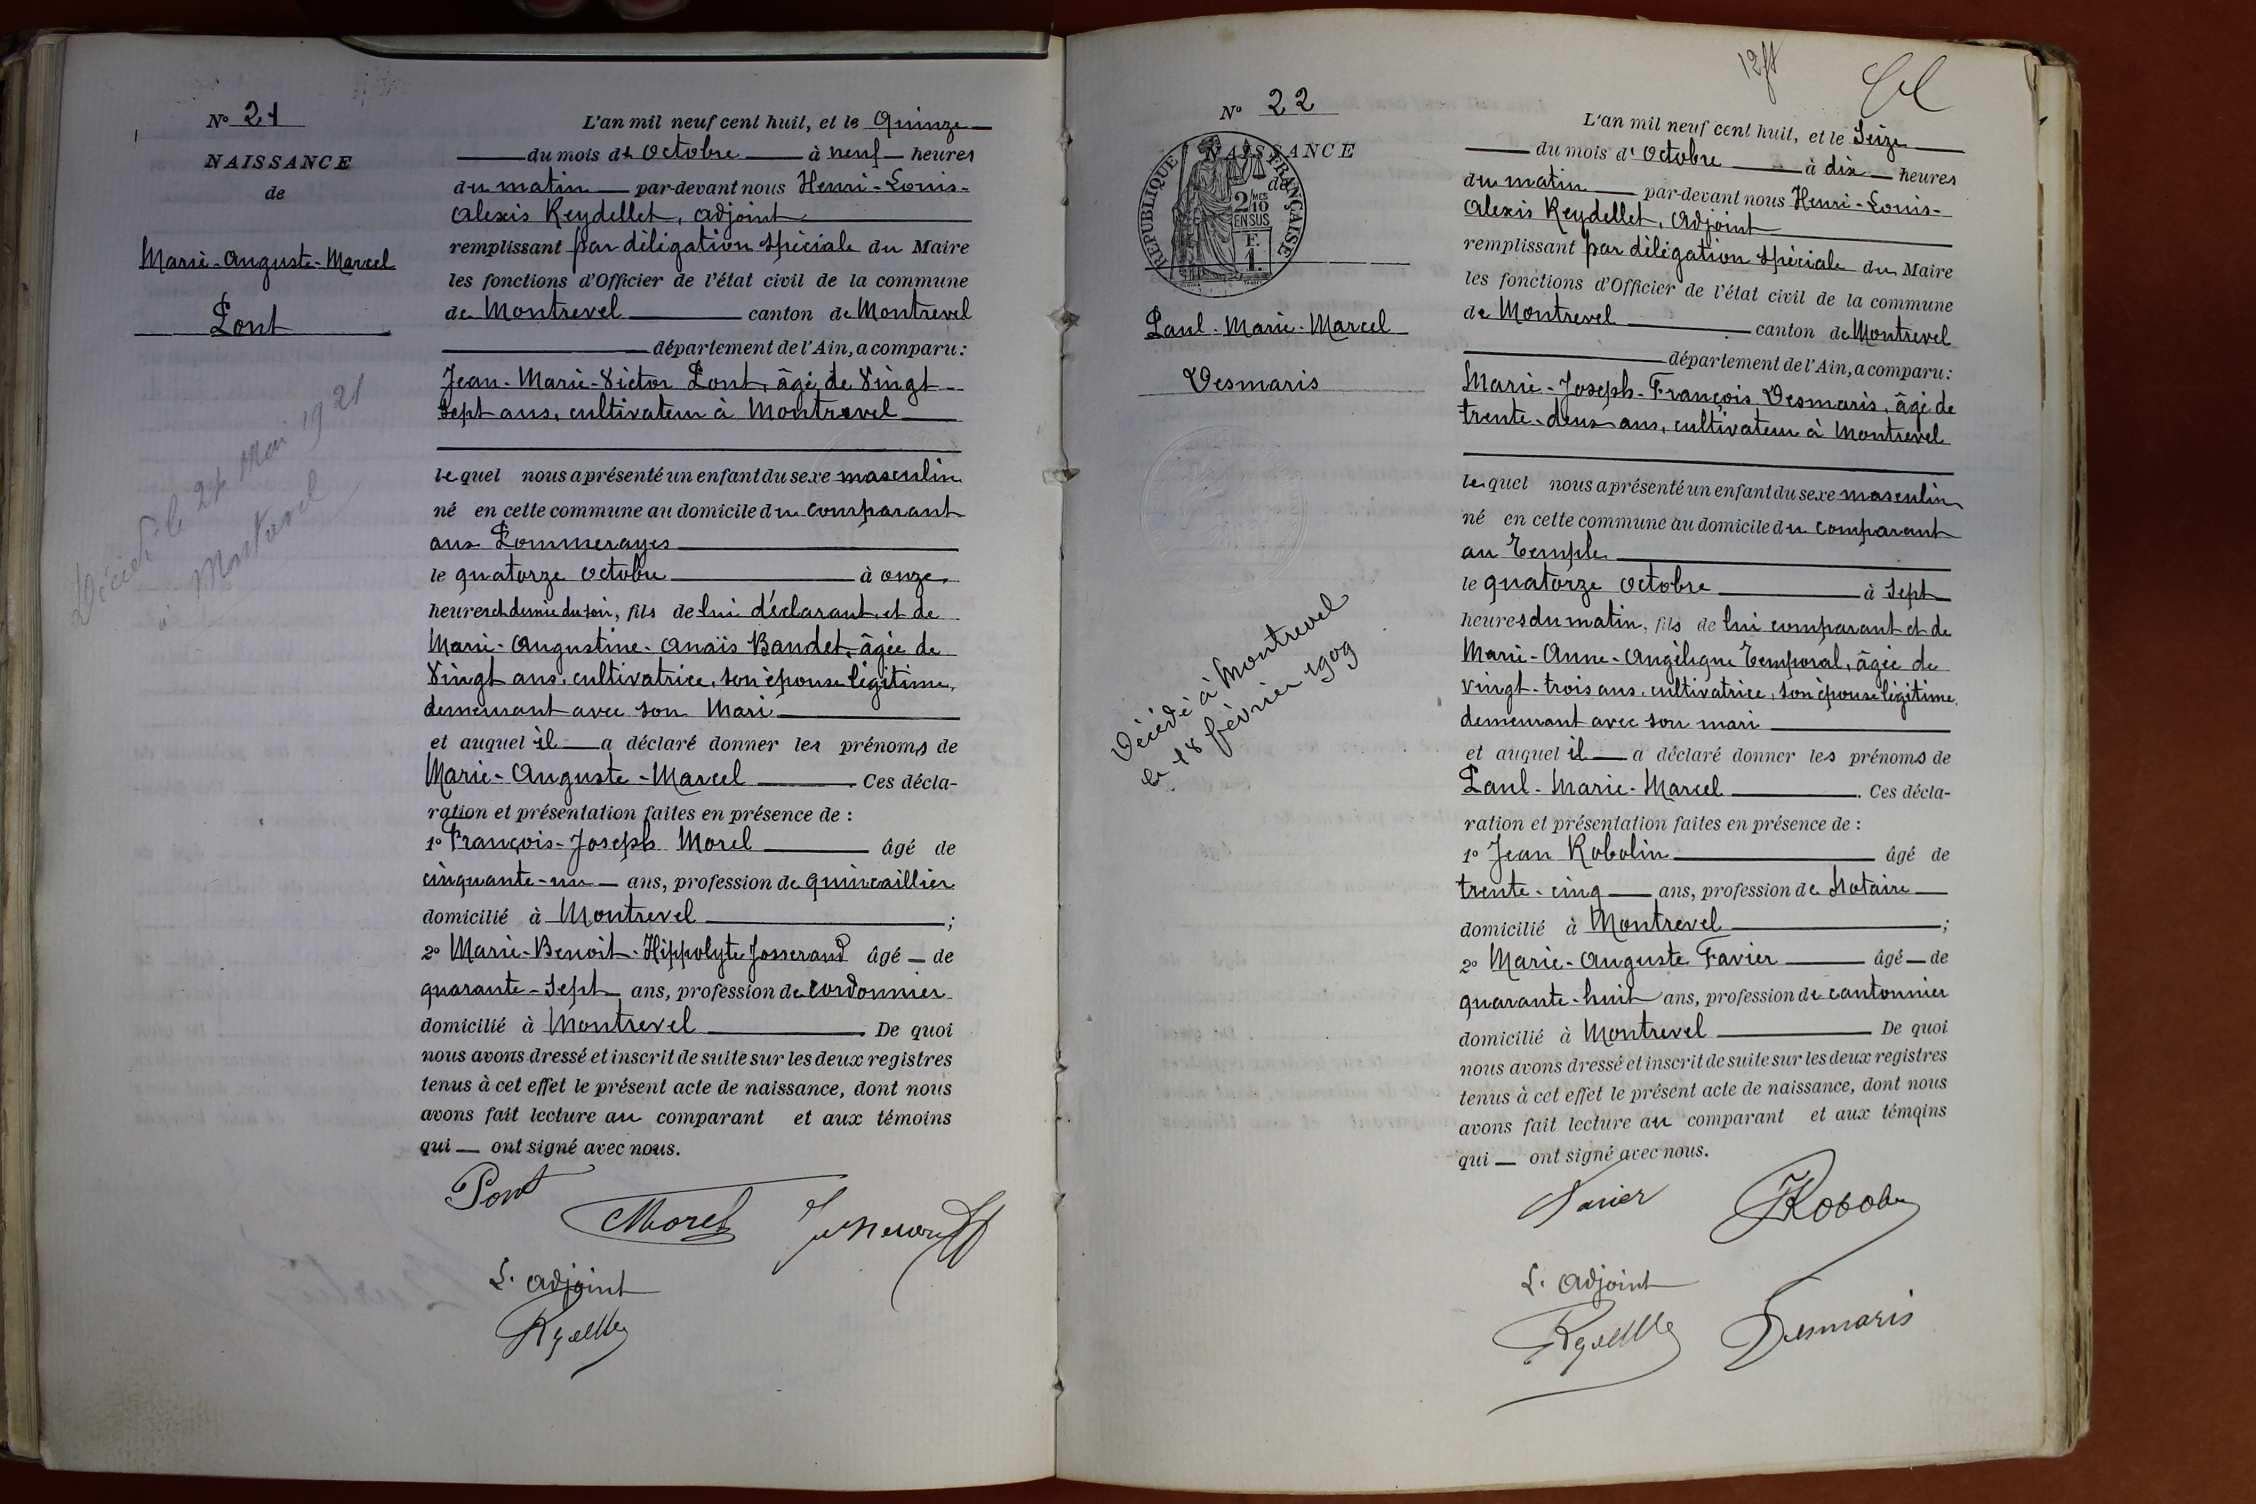 N° 21
NAISSANCE
de
Marie-Auguste-Marcel
Pont
Décédé le 24 Mai 1921
à Montrevel
L'an mil neuf cent huit, et le Quinze
du mois d'Octobre à neuf heures
du matin par-devant nous Henri-Louis-
Alexis Reydellet, adjoint
remplissant par délégation spéciale du Maire
les fonctions d'Officier de l'état civil de la commune
de Montrevel canton de Montrevel
département de l'Ain, a comparu:
Jean-Marie-Victor Pont, âgé de Vingt-
sept ans, cultivateur à Montrevel
lequel nous a présenté un enfant du sexe masculin
né en cette commune au domicile du comparant
aux Pommerayes
le quatorze octobre à onze
heures et demie du soir, fils de lui déclarant et de
Marie-Augustine-Anaïs Baudet, âgée de
Vingt ans, cultivatrice, son épouse légitime,
demeurant avec son Mari
et auquel il a déclaré donner les prénoms de
Marie-Auguste-Marcel. Ces décla-
ration et présentation faites en présence de :
1° François-Joseph Morel âgé de
cinquante-un ans, profession de quincaillier
domicilié à Montrevel ;
2° Marie-Benoit-Hippolyte Josserand âgé de
quarante-sept ans, profession de cordonnier
domicilié à Montrevel. De quoi
nous avons dressé et inscrit de suite sur les deux registres
tenus à cet effet le présent acte de naissance, dont nous
avons fait lecture au comparant et aux témoins
qui ont signé avec nous.
Pont
Morel
L'adjoint
N° 22
NAISSANCE
de
RÉPUBLIQUE FRANÇAISE
2/10 MES
EN SUS
F.
1.
Paul-Marie-Marcel
Desmaris
Décédé à Montrevel
le 18 février 1909
L'an mil neuf cent huit, et le Seize
du mois d'Octobre à dix heures
du matin par-devant nous Henri-Louis-
Alexis Reydellet, adjoint
remplissant par délégation spéciale du Maire
les fonctions d'Officier de l'état civil de la commune
de Montrevel canton de Montrevel
département de l'Ain, a comparu:
Marie-Joseph-François Desmaris, âgé de
trente-deux ans, cultivateur à Montrevel
lequel nous a présenté un enfant du sexe masculin
né en cette commune au domicile du comparant
au Temple
le quatorze octobre à sept
heures du matin, fils de lui comparant et de
Marie-Anne-Angélique Temporal, âgée de
vingt-trois ans, cultivatrice, son épouse légitime,
demeurant avec son mari
et auquel il a déclaré donner les prénoms de
Paul-Marie-Marcel. Ces décla-
ration et présentation faites en présence de :
1° Jean Robolin âgé de
trente-cinq ans, profession de Notaire
domicilié à Montrevel ;
2° Marie-Auguste Favier âgé de
quarante-huit ans, profession de cantonnier
domicilié à Montrevel De quoi
nous avons dressé et inscrit de suite sur les deux registres
tenus à cet effet le présent acte de naissance, dont nous
avons fait lecture au comparant et aux témoins
qui ont signé avec nous.
Favier
L'adjoint
Desmaris